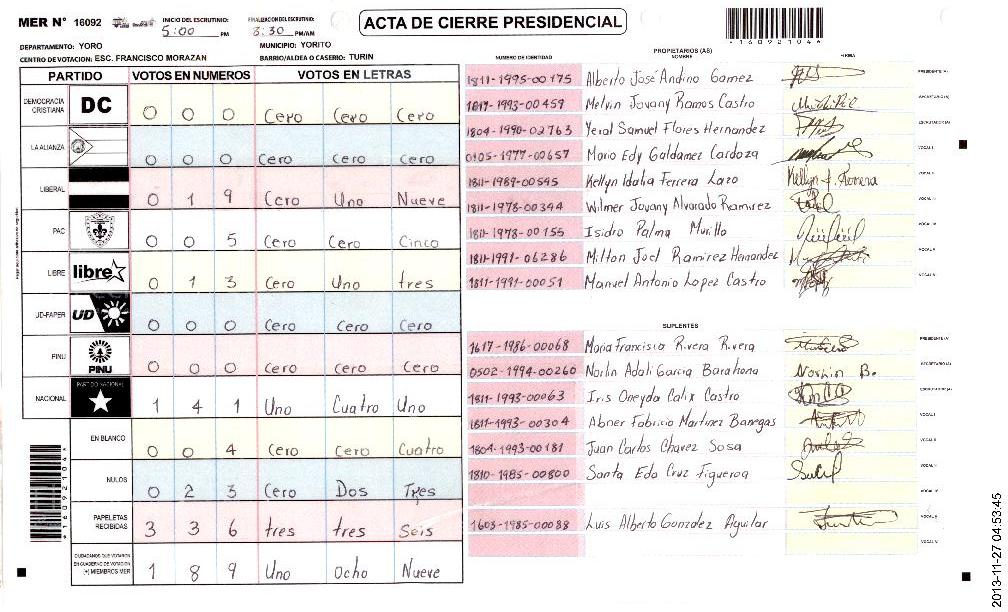 MER N° 16092
INICIO DEL ESCRUTINIO:
5:00 PM
FINALIZACION DEL ESCRUTINIO:
8:30 PM/AM
ACTA DE CIERRE PRESIDENCIAL
*160921044*
DEPARTAMENTO: YORO
MUNICIPIO: YORITO
CENTRO DE VOTACION: ESC. FRANCISCO MORAZAN
BARRIO/ALDEA O CASERIO: TURIN
PARTIDO VOTOS EN NUMEROS VOTOS EN LETRAS
DEMOCRACIA CRISTIANA DC 0 0 0 Cero Cero Cero
LA ALIANZA 0 0 0 Cero Cero Cero
LIBERAL 0 1 9 Cero Uno Nueve
PAC 0 0 5 Cero Cero Cinco
LIBRE libre 0 1 3 Cero Uno tres
UD-FAPER UD 0 0 0 Cero Cero Cero
PINU PINU 0 0 0 Cero Cero Cero
NACIONAL PARTIDO NACIONAL 1 4 1 Uno Cuatro Uno
EN BLANCO 0 0 4 Cero Cero Cuatro
NULOS 0 2 3 Cero Dos Tres
PAPELETAS RECIBIDAS 3 3 6 tres tres Seis
CIUDADANOS QUE VOTARON EN CUADERNO DE VOTACION (+) MIEMBROS MER 1 8 9 Uno Ocho Nueve
*160921044*
PROPIETARIOS (AS)
NUMERO DE IDENTIDAD NOMBRE FIRMA
1811-1995-00175 Alberto José Andino Gomez PRESIDENTE (A)
1817-1993-00459 Melvin Jovany Ramos Castro SECRETARIO (A)
1804-1990-02763 Yeral Samuel Flores Hernandez ESCRUTADOR (A)
0105-1977-00657 Mario Edy Galdamez Cardoza VOCAL I
1811-1989-00595 Kellyn Idalia Ferrera Lazo
1811-1978-00394 Wilmer Jovany Alvarado Ramirez
1811-1978-00155 Isidro Palma Murillo
1811-1991-06286 Milton Joel Ramirez Hernandez
1811-1991-00051 Manuel Antonio Lopez Castro
SUPLENTES
1617-1986-00068 Maria Francisca Rivera Rivera PRESIDENTE (A)
0502-1994-00260 Norlin Adali Garcia Barahona SECRETARIO (A)
1811-1993-00063 Iris Oneyda Calix Castro ESCRUTADOR (A)
1811-1993-00304 Abner Fabricio Martinez Banegas VOCAL I
1804-1993-00181 Juan Carlos Chavez Sosa
1810-1985-00800 Santa Eda Cruz Figueroa
1603-1985-00088 Luis Alberto Gonzalez Aguilar
2013-11-27 04:53:45